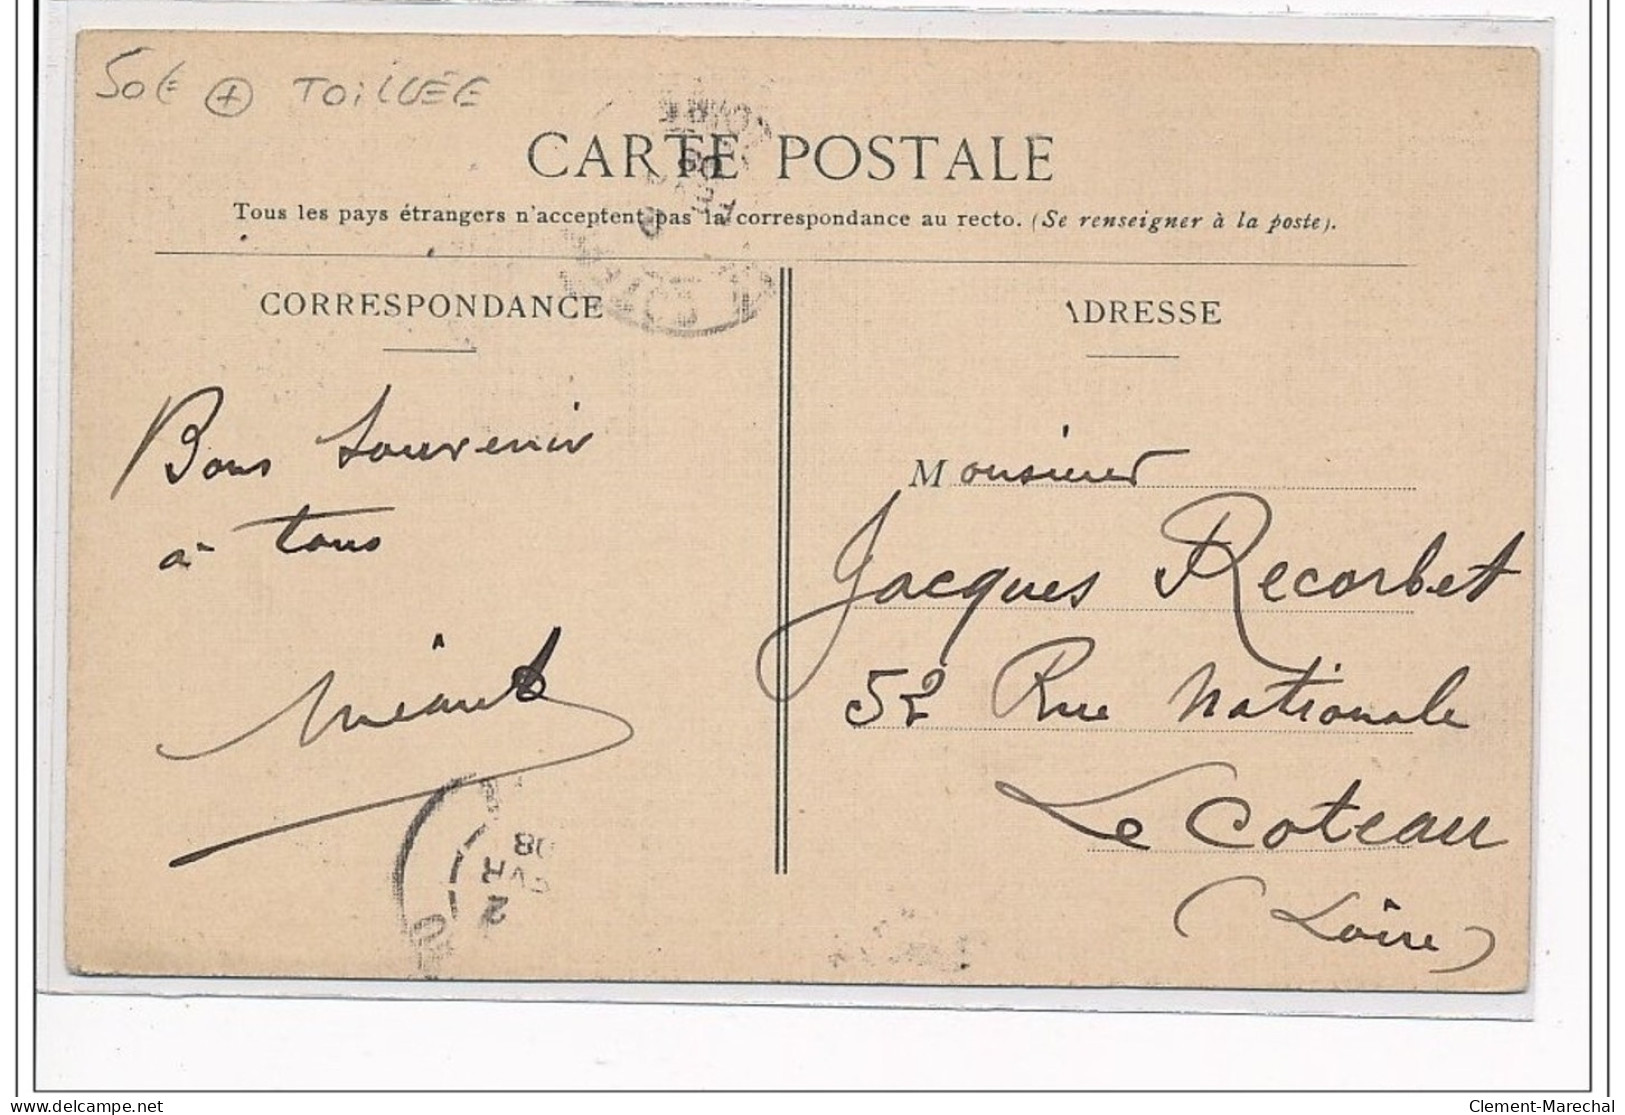 50€ + TOILLÉE
CARTE POSTALE
Tous les pays étrangers n'acceptent pas la correspondance au recto. (Se renseigner à la poste).
CORRESPONDANCE
ADRESSE
Bons Souvenir
à tous
Monsieur
Jacques Recorbet
52 Rue Nationale
Le Coteau
(Loire)
08
2
Clement-Marechal